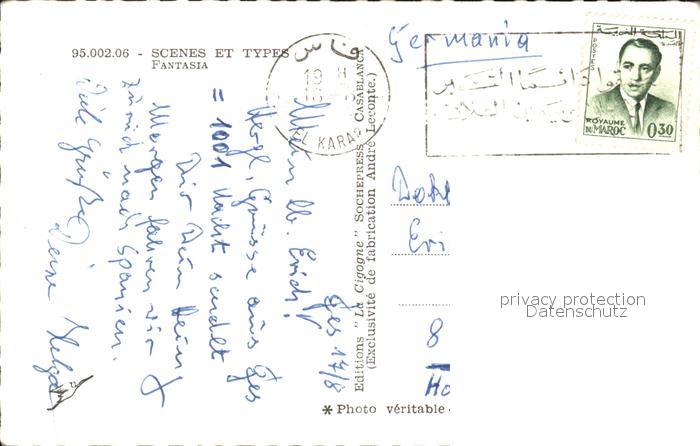 95.002.06 - SCENES ET TYPES
FANTASIA
Fes 17/8
Mein lb. Erich!
Herzl. Grüsse aus Fes
= 1001 Nacht sendet
Dir Dein Heinz
Morgen fahren wir
zurück nach Spanien.
Viele Grüße
Deine Helga
Editions "La Cigogne" SOCHEPRESS - CASABLANCA
(Exclusivité de fabrication André Leconte.)
* Photo véritable
فاس
EL KARAO
Germania
المملكة المغربية
POSTES
ROYAUME
DU MAROC 0,30
Eri
8
privacy protection
Datenschutz